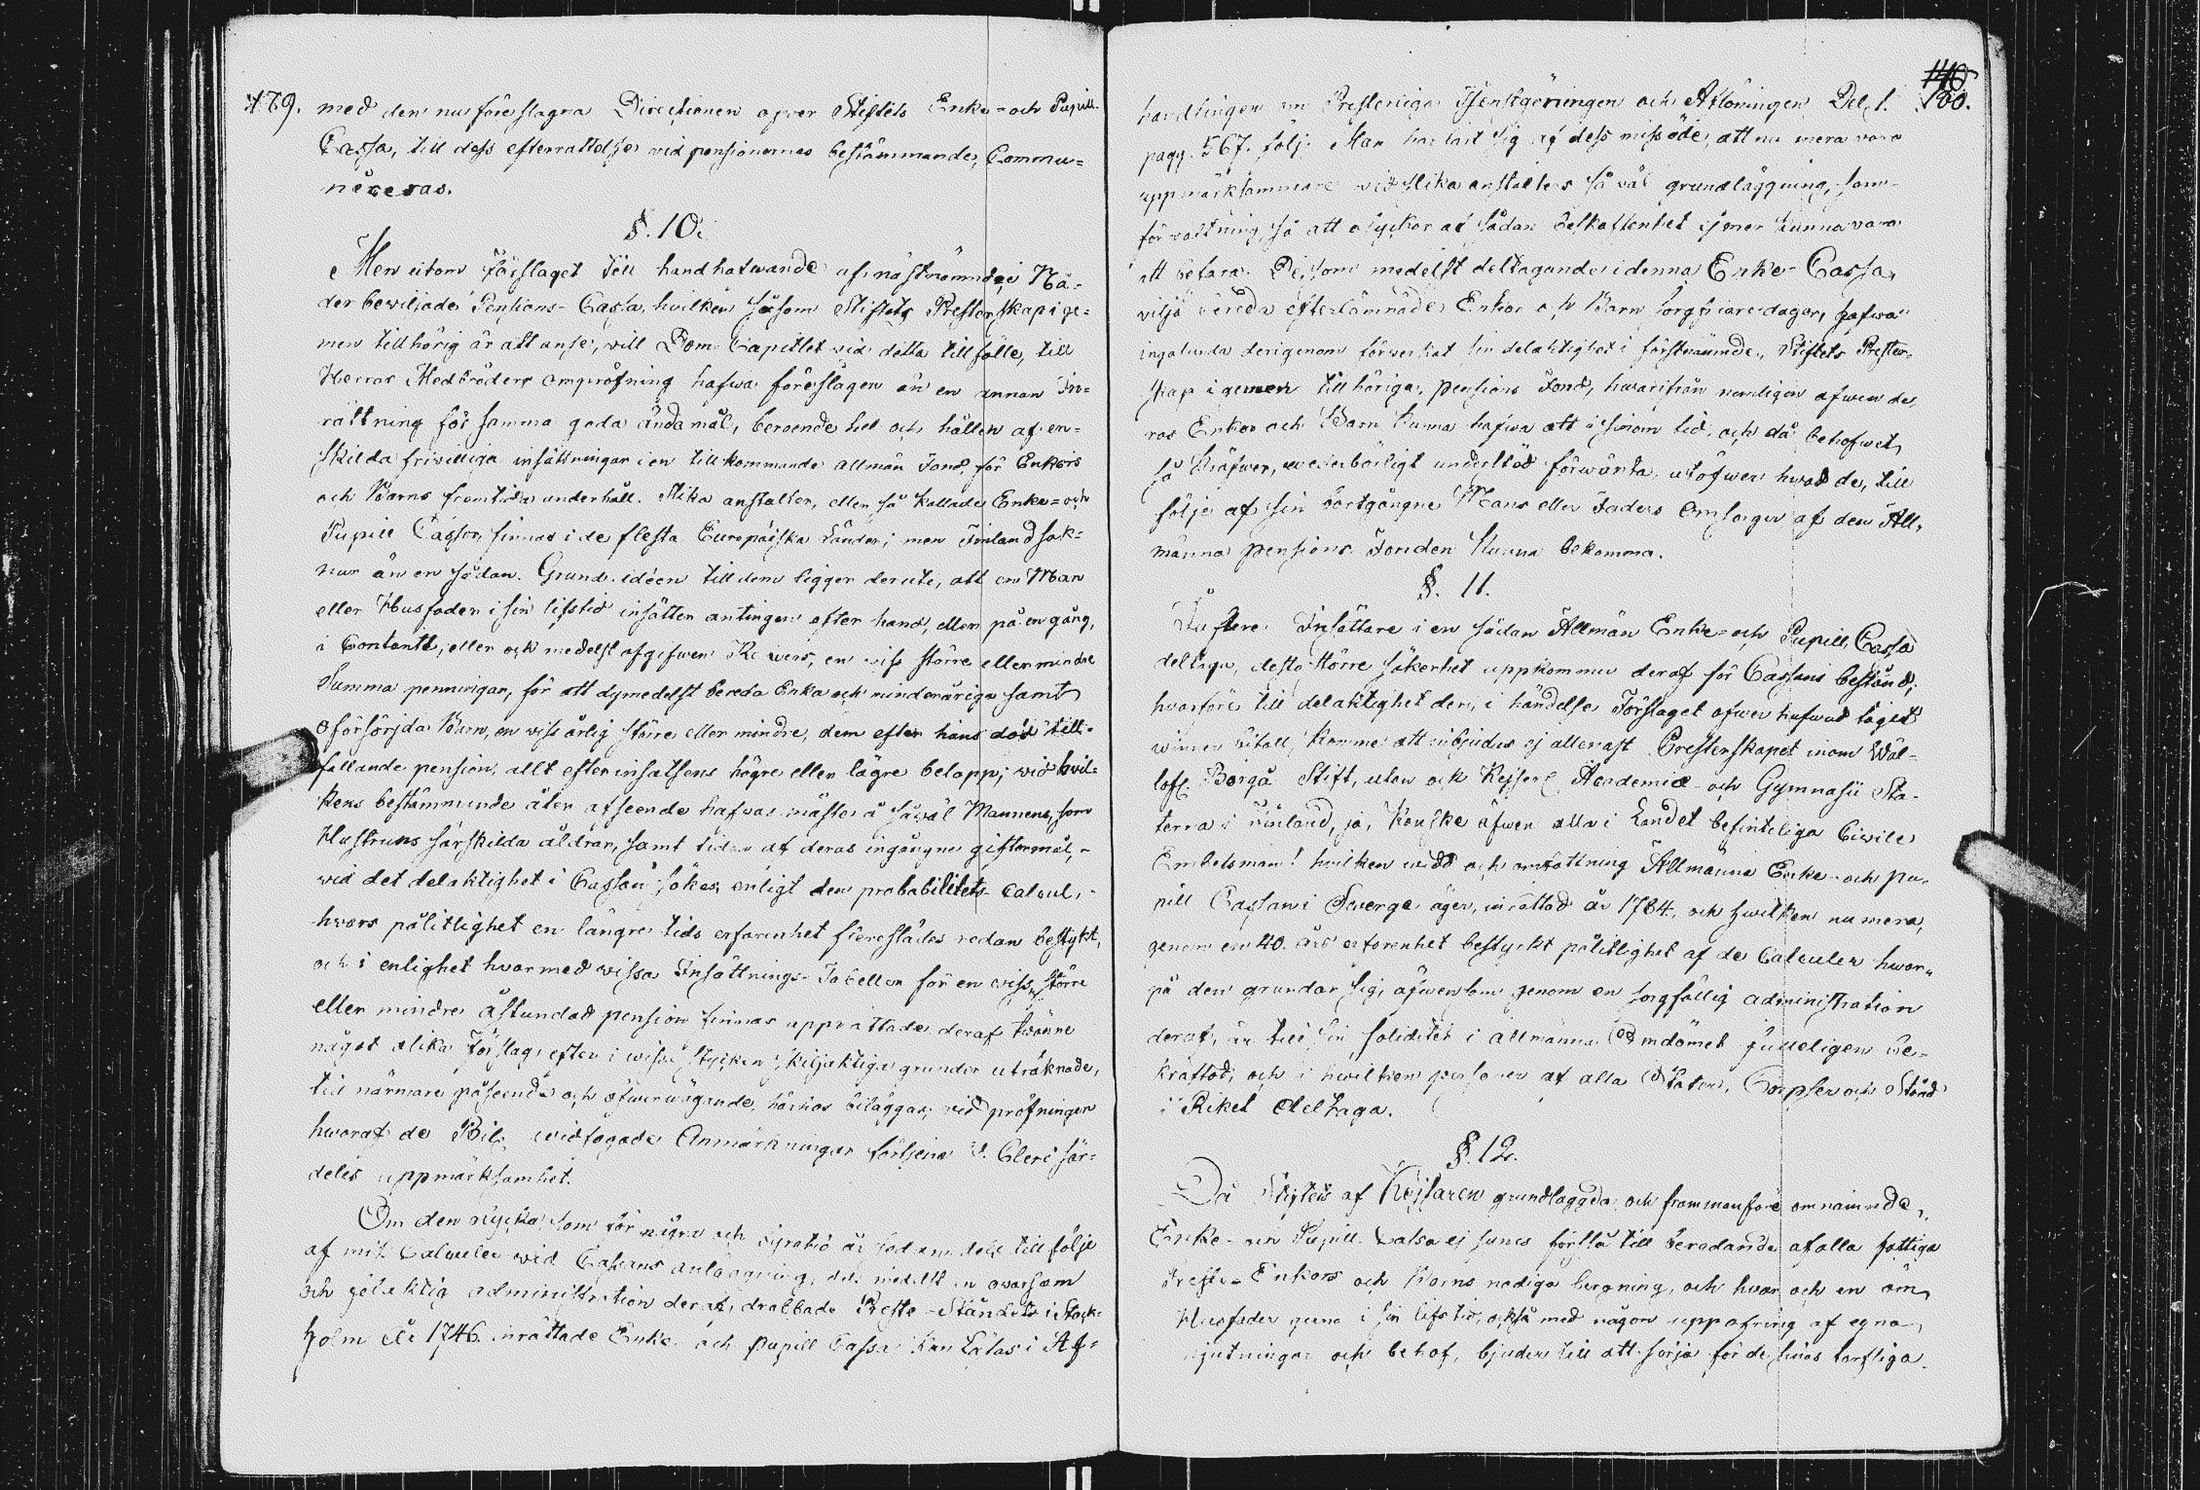 179.
med den nu föreslagna Directionen öfver Stiftets Enke- och Pupill-
Cassa, till dess efterrättelse vid pensionernas bestämmande, Commu=
niceras.
§. 10.
Men utom Förslaget till handhafwande af näst nämnde i Nå=
der bewiljade Pensions-Cassa, hvilken såsom Stiftets Presterskap i ge=
men tillhörig är att anse, will Dom-Capitlet vid detta tillfälle, till
Herrar Medbröders ompröfning hafwa föreslagen än en annan In=
rättning för samma goda ändamål, beroende hel och hållen af en=
skilda frivilliga insättningar i en tillkommande allmän Fond, för Enkors
och Barns framtida underhåll. Slika anstalter, eller så kallade Enke= och
Pupill Cassor, finnas i de flesta Europäiska Länder; men Finland sak=
nar än en sådan. Grund-idéen till dem ligger derute, att en Man
eller Husfader i sin lifstid insätter antingen efter hand, eller på en gång,
i Contant, eller ock medelst afgifwen Revers, en viss större eller mindre
Summa penningar, för att dymedelst bereda Enka och minderåriga samt
oförsörjda Barn, en viss årlig större eller mindre, dem efter hans död till=
fallande pension, allt efter insatsens högre eller lägre belopp; wid hvil=
kens bestämmande åter afseende hafwas måste å såväl Mannens, som
Hustruns särskilda åldrar, samt tiden af deras ingångne giftermål,
vid det delaktighet i Cassan sökes, enligt den probabilitets-Calcul,
hvars pålitlighet en längre tids erfarenhet redan bestyrkt,
och i enlighet hvarmed wissa Insättnings-Tabeller för en viss, större
eller mindre åstundad pension finnas upprättade, deraf twänne
något olika Förslag, efter i wissa stycken skiljaktiga grunder uträknade,
till närmare påseende och öfwerwägande, härhos biläggas; vid pröfningen
hwaraf de Bil. widfogade Anmärkningar förtjena V. Cleri sär=
deles uppmärksamhet.
Om den olycka, som för några och sjutio år sedan, dels till följe
af Calculer wid Cassans anläggning, dels medelst en owarsam
och felaktig administration deraf, drabbade Preste-Ståndets i Stock=
holm År 1746 inrättade Enke- och Pupill Cassa, kan läsas i Af=
180.
handlingen om Presterliga Tjenstgöringen och Aflöningen Del. 1.
pagg. 567. följ. Man har lärt sig af dess missöde, att nu mera vara
uppmärksammare vid slika anstalters så väl grundläggning, som
förvaltning, så att olyckor af sådan beskaffenhet ej mer kunna vara
att befara. De, som medelst deltagande i denna Enke-Cassa,
vilja bereda efterlämnade Enkor och Barn sorgfriare dagar, hafwa
ingalunda derigenom förwerkat sin delaktighet i förstnämnde, Stiftets Prester-
skap i gemen tillhöriga, pensions Fond, hwarifrån nemligen äfwen de-
ras Enkor och Barn kunna hafwa att i sinom tid, och då behofwet
så kräfwer, wederbörligt understöd förwänta, utöfwer hwad de, till
följe af sin bortgångne Mans eller Faders Omsorger af den All-
männa pensions Fonden kunna bekomma.
§. 11.
Ju flere Insättare i en sådan Allmän Enke- och Pupill Cassa
deltaga, desto större säkerhet uppkommer deraf för Cassans bestånd;
hwarföre till delaktighet deri, i händelse Förslaget öfwer hufwud taget
winner bifall, komme att inbjudas ej allenast Presterskapet inom Wäl-
lofl. Borgå Stift, utan ock Kejserl. Academiæ- och Gymnasii Sta-
terna i Finland, ja, kanske äfwen alla i Landet befinteliga Civile
Embetsmän! hvilken widd och omfattning Allmänna Enke- och pu-
pill Cassan i Swerge äger, inrättad år 1784, och hwilken numera,
genom en 40 års erfarenhet bestyrkt pålitlighet af de Calculer hwar-
på den grundar sig, äfwensom genom en sorgfällig administration
deraf, är till sin soliditet i allmänna Omdömet fulleligen be-
kräftad; och i hwilken personer af alla Stater, Corpser och Stånd
i Riket deltaga.
§. 12.
Då Stiftets af Kejsaren grundlaggda och frammanföre omnämnde
Enke- och Pupill-Cassa ej synes förslå till beredande af alla fattiga
Preste-Enkors och Barns nödiga bergning, och hvar och en öm
Husfader gerna i sin lifstid, också med någon uppofring af egna
njutningar och behof, bjuder till att sörja för de sinas torftiga